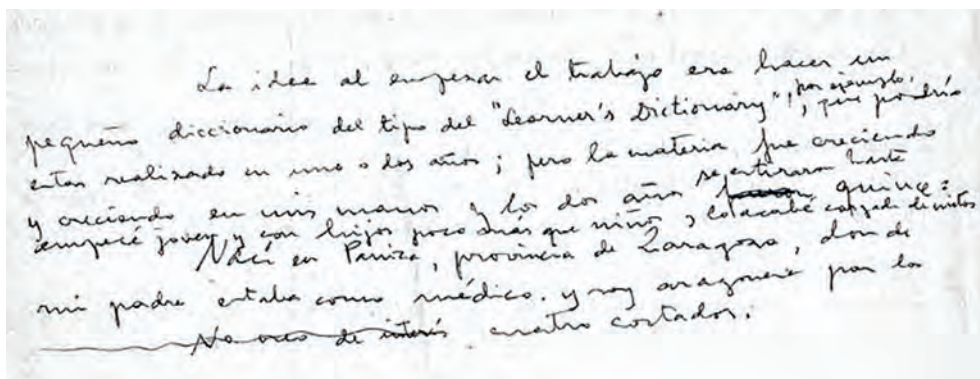 La idea al empezar el trabajo era hacer un
pequeño diccionario del tipo del "Learner's Dictionary", por ejemplo, que podría
estar realizado en uno o dos años; pero la materia fue creciendo
y creciendo en mis manos y los dos años se estiraron hasta quince:
empecé joven y con hijos poco más que niños y lo acabé cargada de nietos
Nací en Paniza, provincia de Zaragoza, donde
mi padre estaba como médico. y soy aragonesa por los
No creo de interés cuatro costados.